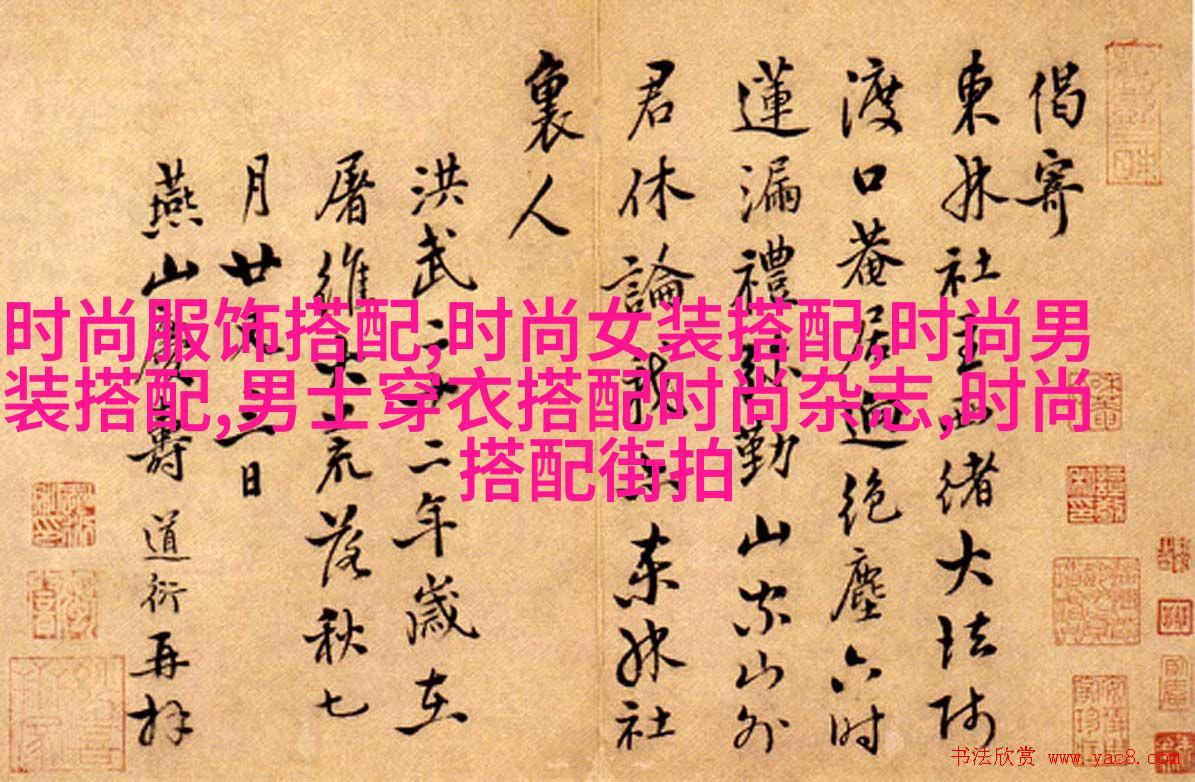 偈寄
東林社主西緒大法師
渡口菴居迥絕塵六時
蓮漏禮勤山家山外
君休論東林社
裏人
洪武二十二年歲在
屠維大荒落秋七
月廿二日
燕山壽道衍再拜
时尚服饰搭配,时尚女装搭配,时尚男
装搭配,男士穿衣搭配时尚杂志,时尚
搭配街拍
书法欣赏 www.yac8.com